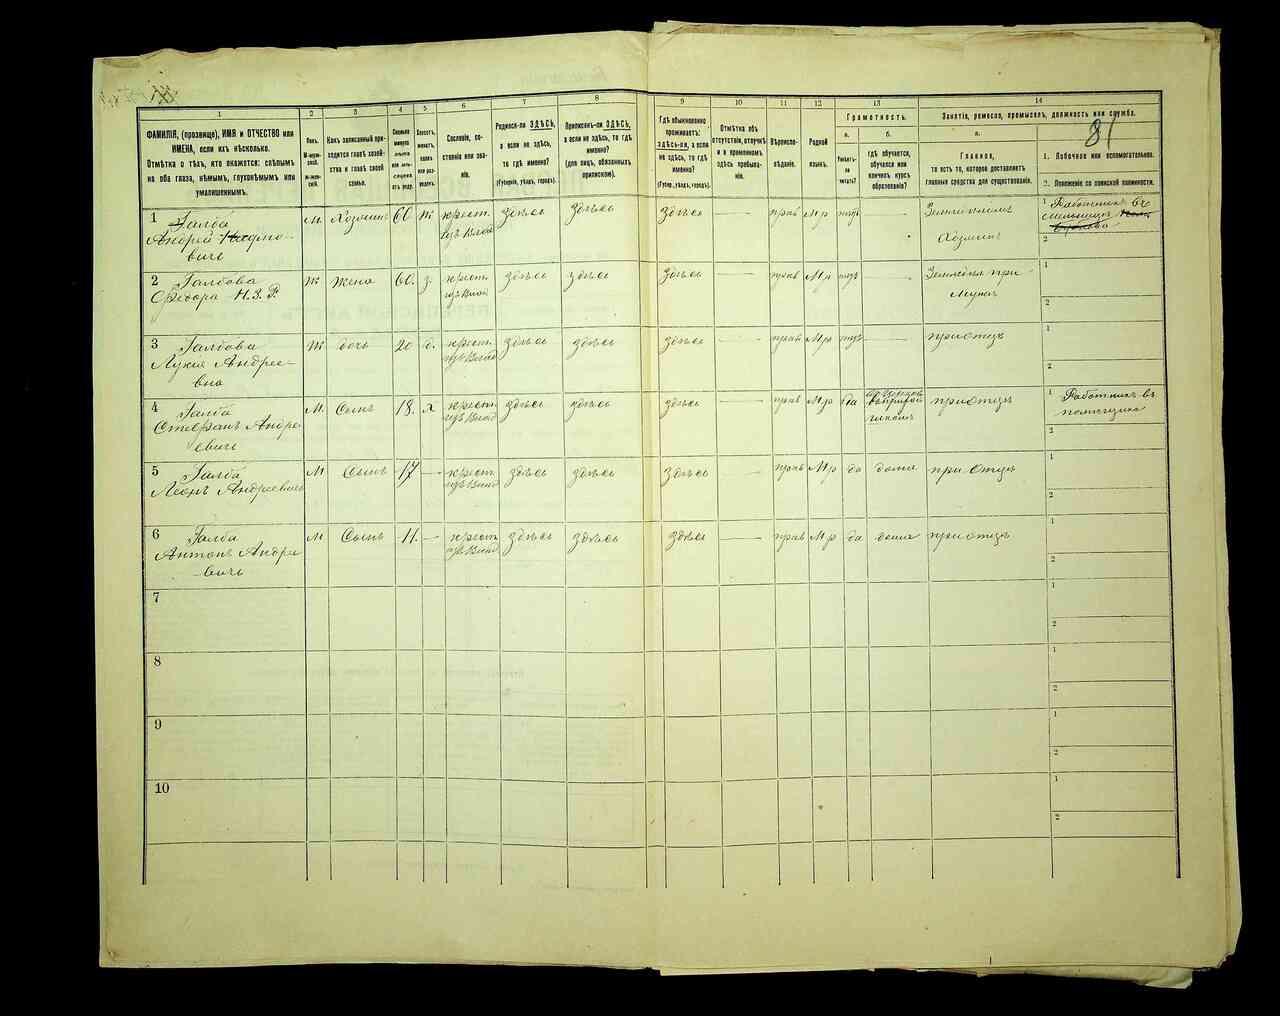 81
1 2 3 4 5 6 7 8 9 10 11 12 13 14
ФАМИЛІЯ, (прозвище), ИМЯ и ОТЧЕСТВО или
ИМЕНА, если ихъ нѣсколько.
Отмѣтка о тѣхъ, кто окажется: слѣпымъ
на оба глаза, нѣмымъ, глухонѣмымъ или
умалишеннымъ.
Полъ.
М-муж-
ской.
Ж-жен-
скій.
Какъ записанный при-
ходится главѣ хозяй-
ства и главѣ своей
семьи.
Сколько
минуло
лѣтъ
или мѣ-
сяцевъ
отъ роду.
Холостъ,
женатъ,
вдовъ
или раз-
веденъ.
Сословіе, со-
стояніе или зва-
ніе.
Родился-ли ЗДѢСЬ,
а если не здѣсь,
то гдѣ именно?
(Губернія, уѣздъ, городъ).
Приписанъ-ли ЗДѢСЬ,
а если не здѣсь, то гдѣ
именно?
(для лицъ, обязанныхъ
припиской).
Гдѣ обыкновенно
проживаетъ:
здѣсь-ли, а если
не здѣсь, то гдѣ
именно?
(Губер., уѣздъ, городъ).
Отмѣтка объ
отсутствіи, отлучкѣ
и о временномъ
здѣсь пребыва-
ніи.
Вѣроиспо-
вѣданіе.
Родной
языкъ.
Грамотность.
а.
Умѣетъ-
ли
читать?
б.
гдѣ обучается,
обучался или
кончилъ курсъ
образованія?
Занятіе, ремесло, промыселъ, должность или служба.
а.
Главное,
то есть то, которое доставляетъ
главныя средства для существованія.
1. Побочное или вспомогательное.
2. Положеніе по воинской повинности.
1 Галба
Андрей
вичъ
М. Хозяинъ 60 ж крест. здѣсь здѣсь здѣсь — прав Мр нѣтъ —
Хозяинъ
1 Работникъ въ
мельницѣ
2
2 Галбова
Ѳедора Н. З. Р.
Ж жена 60. з. крест. здѣсь здѣсь здѣсь — прав Мр нѣтъ —
Земледѣл при
Мужѣ
1
2
3 Галбова
Лукія Андрее-
вна
Ж дочь 20 д. крест. здѣсь здѣсь здѣсь — прав Мр нѣтъ — при отцѣ
1
2
4 Галба
Стефанъ Андре
евичъ
М. Сынъ 18. х крест. здѣсь здѣсь здѣсь — прав Мр да
при отцѣ
1 Работникъ въ
помѣщика
2
5 Галба
Леонъ Андреевичъ
М Сынъ 17 — крест. здѣсь здѣсь здѣсь — прав Мр да дома при отцѣ
1
2
6 Галба
Антонъ Андре
вичъ
М Сынъ 11. — крест. здѣсь здѣсь здѣсь — прав Мр да дома при отцѣ
1
2
7
1
2
8
1
2
9
1
2
10
1
2